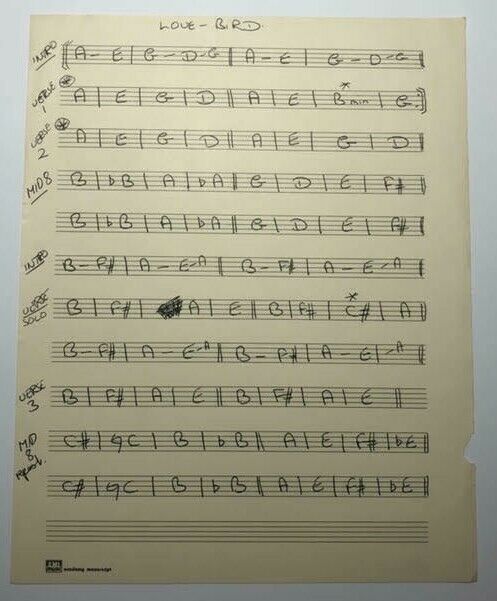 LOVE - BIRD.
INTRO A - E | G - D - G || A - E | G - D - G
VERSE 1 A | E | G | D || A | E | * Bmin | G.
VERSE 2 A | E | G | D || A | E | G | D
MID 8 B | bB | A | bA || G | D | E | F#
B | bB | A | bA || G | D | E | F#
INTRO B - F# | A - E - A || B - F# | A - E - A
VERSE SOLO B | F# | A | E || B | F# | * C# | A
B - F# | A - E - A || B - F# | A - E | - A
VERSE 3 B | F# | A | E || B | F# | A | E ||
MID 8 repeat. C# | C | B | bB || A | E | F# | bE
C# | C | B | bB || A | E | F# | bE
EMI music academy manuscript